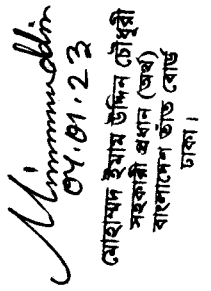 04.01.23
মোহাম্মদ ইমাম উদ্দিন চৌধুরী
সহকারী প্রধান (অর্থ)
বাংলাদেশ তাঁত বোর্ড
ঢাকা।